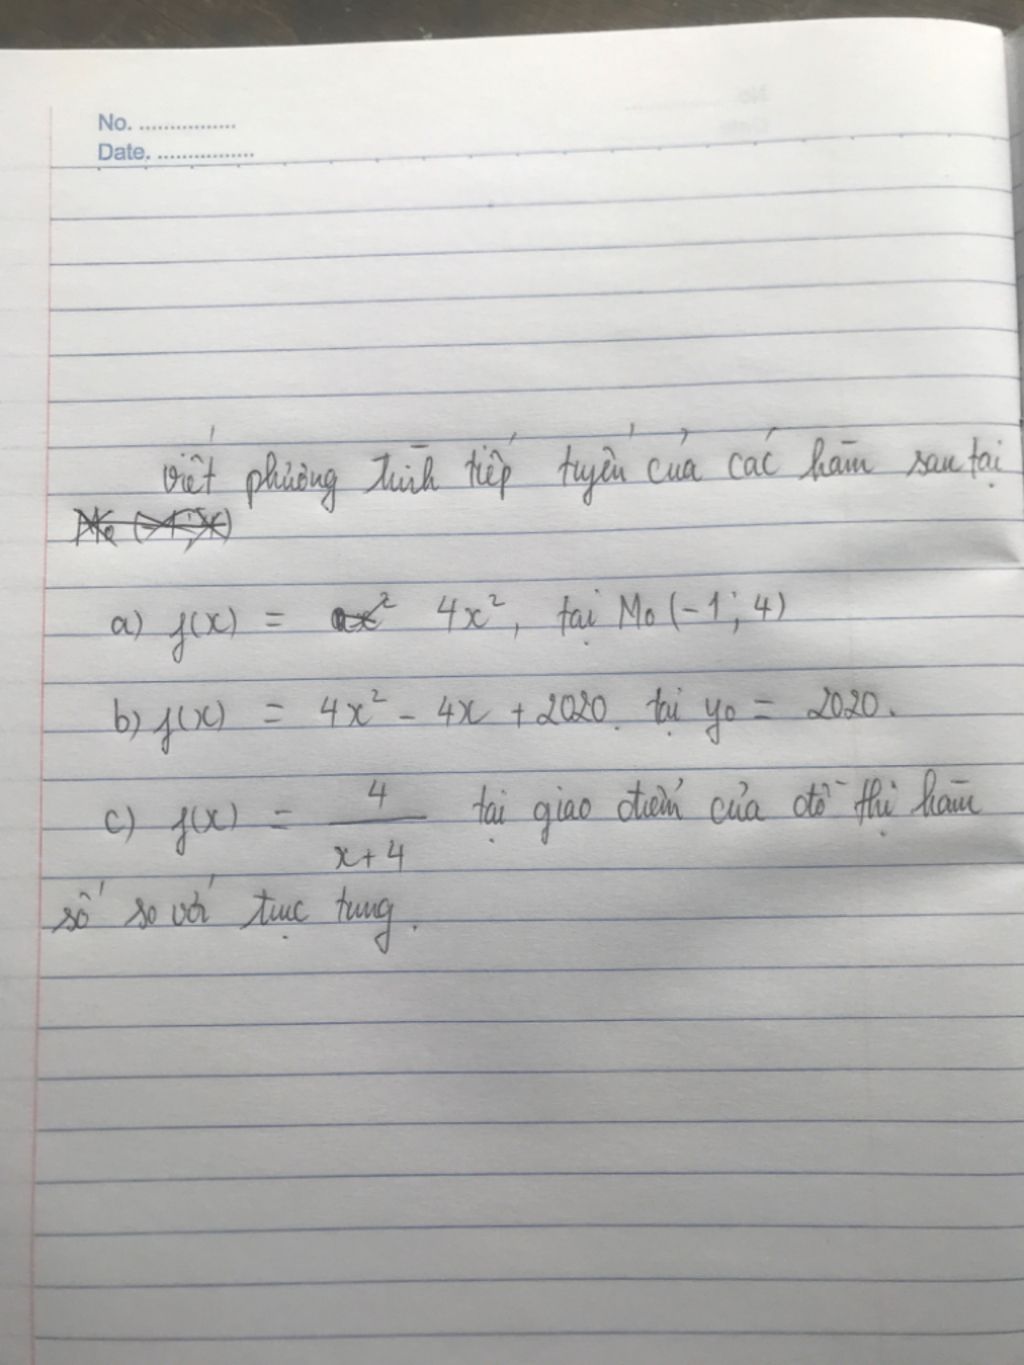 No. ................
Date. ................
viết phương trình tiếp tuyến của các hàm sau tại
a) f(x) = 4x², tại M₀ (-1; 4)
b) f(x) = 4x² - 4x + 2020. tại y₀ = 2020.
c) f(x) = 4/(x+4) tại giao điểm của đồ thị hàm
số so với trục tung.